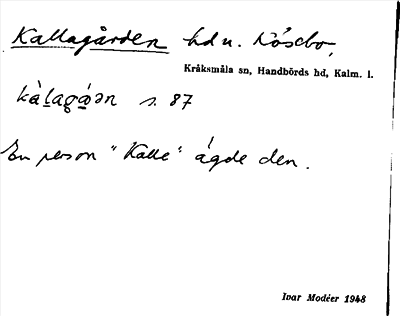 Kallagården hd u. Kösebo,
Kråksmåla sn, Handbörds hd, Kalm. l.
kàlagá̊ən s. 87
En person "Kalle" ägde den.
Ivar Modéer 1948